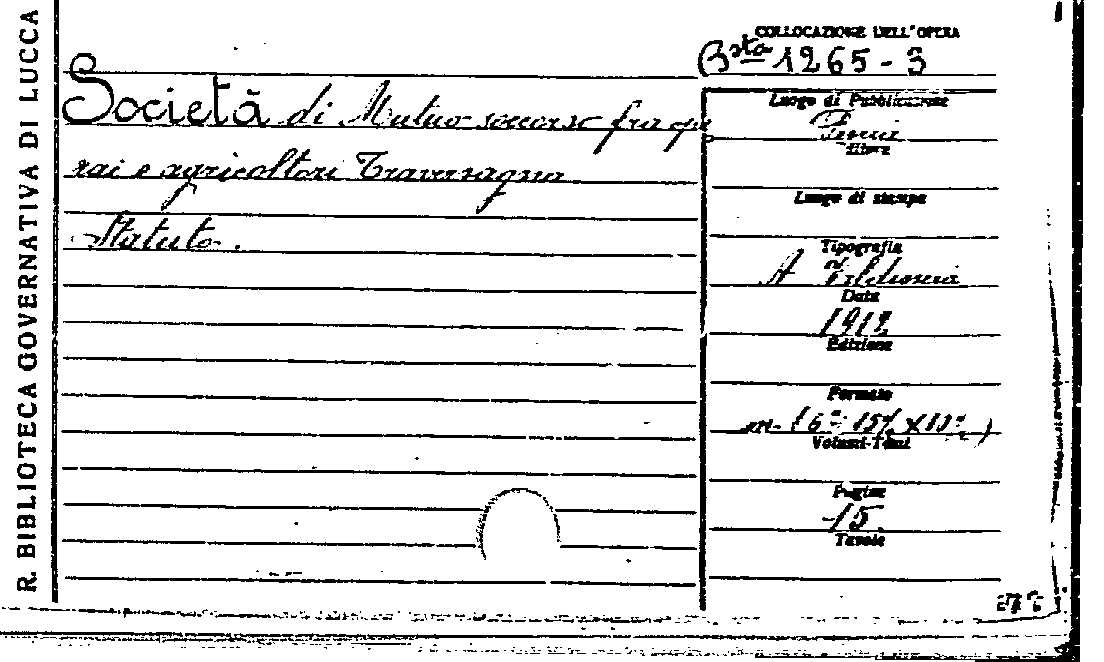 R. BIBLIOTECA GOVERNATIVA DI LUCCA
COLLOCAZIONE DELL'OPERA
Bsta 1265-3
Società di Mutuo soccorso fra ope
rai e agricoltori Traversagna
Statuto.
Luogo di Pubblicazione
Pescia
Editore
Luogo di stampa
Tipografia
A
Data
1912
Edizione
Formato
Volumi-Tomi
Pagine
15
Tavole